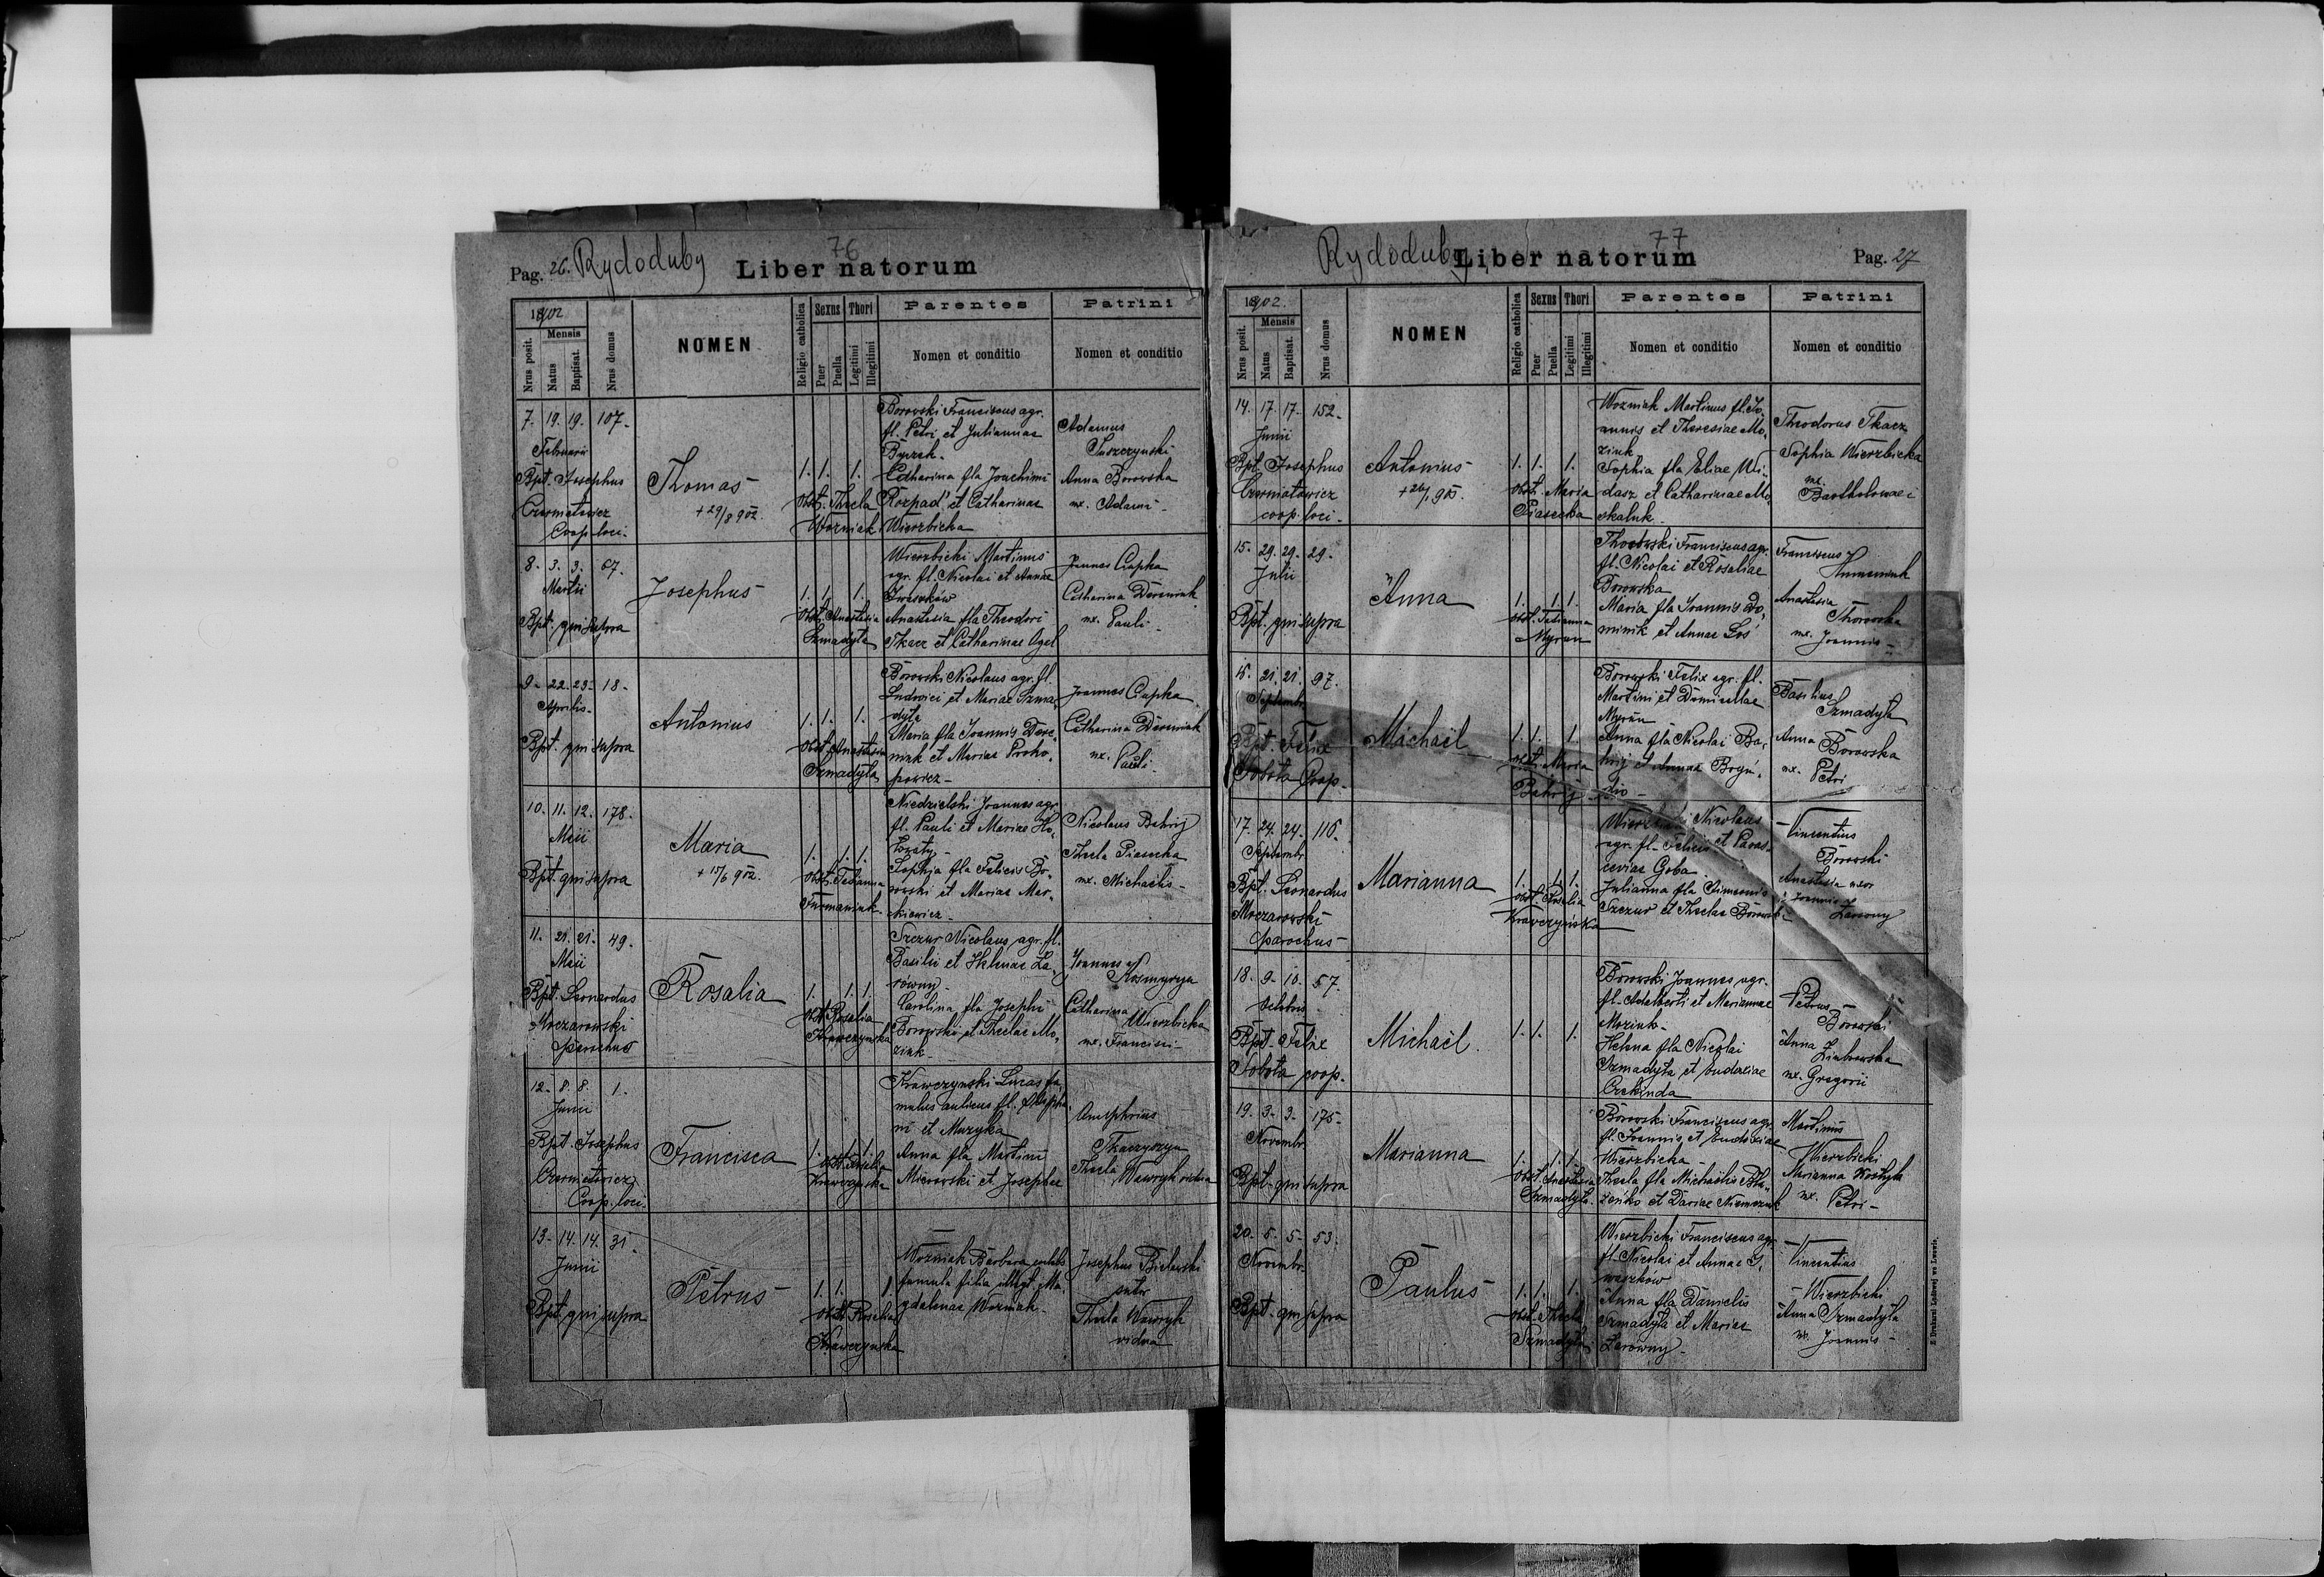 Pag. 26. Rydoduby 76
Liber natorum
1902
Nrus posit.
Mensis
Natus
Baptisat.
Nrus domus
NOMEN
Religio catholica
Sexus
Puer
Puella
Thori
Legitimi
Illegitimi
Parentes
Nomen et conditio
Patrini
Nomen et conditio
7. 19. 19. 107.
Februarii
Bpt. Josephus
Coop. loci.
Thomas
+ 29/8 902.
1. 1. 1.
obst. Thecla
Woźniak
Borowski Franciscus agr.
fl. Petri et Juliannae
Catharina fla Joachimi
Rozpad et Catharinae
Wierzbicka
Adamus
Anna Borowska
ux. Adami
8. 3. 3. 67.
Martii
Bpt. qui supra
Josephus
1. 1. 1.
obst. Anastasia
Szmadyła
Wierzbicki Martinus
agr. fl. Nicolai et Annae
Anastasia fla Theodori
Tkacz et Catharinae
Joannes Ciapka
Catharina Dereniuk
ux. Pauli
9. 22. 23. 18.
Aprilis
Bpt. qui supra
Antonius
1. 1. 1.
obst. Anastasia
Szmadyła
Borowski Nicolaus agr. fl.
Ludovici et Mariae Szma-
dyła
Maria fla Joannis Dere-
niuk et Mariae Proko-
powicz
Joannes Ciapka
Catharina Dereniuk
ux. Pauli
10. 11. 12. 178.
Maii
Bpt. qui supra
Maria
+ 15/6 902.
1. 1. 1.
obst. Tatianna
Furmaniuk
Niedzielski Joannes agr.
fl. Pauli et Mariae
Sophia fla Felicis Bo-
rowski et Mariae Mar-
kiewicz
Nicolaus Babij
Thecla Piasecka
ux. Michaelis
11. 21. 21. 49.
Maii
Bpt. Leonardus
Moczarowski
parochus
Rosalia
1. 1. 1.
obst. Rosalia
Krawczyńska
Szczur Nicolaus agr. fl.
Basilii et Helenae Ze-
rowny
Carolina fla Josephi
Borowski et Theclae Mo-
ziuk
Joannes
Catharina
Wierzbicka
ux. Francisci
12. 8. 8. 1.
Junii
Bpt. Josephus
Coop. loci.
Francisca
1. 1. 1.
obst. Rosalia
Krawczyńska
Krawczynski Lucas fa-
mulus aulicus fl.
et Muzyka
Anna fla Martini
et Josephae
Thecla Wawryk vidua
13. 14. 14. 31.
Junii
Bpt. qui supra
Petrus
1. 1. 1.
obst. Rosalia
Krawczyńska
Woźniak Barbara
famula filia illegt. Ma-
gdalenae Woźniak
Josephus Bielawski
sutor
Thecla Wawryk
vidua
Rydoduby 77
Liber natorum
Pag. 27
1902.
Nrus posit.
Mensis
Natus
Baptisat.
Nrus domus
NOMEN
Religio catholica
Sexus
Puer
Puella
Thori
Legitimi
Illegitimi
Parentes
Nomen et conditio
Patrini
Nomen et conditio
14. 17. 17. 152.
Junii
Bpt. Josephus
coop. loci
Antonius
1. 1. 1.
obst. Maria
Piasecka
Woźniak Martinus fl. Jo-
annis et Theresiae Mo-
ziuk
Sophia fla Eliae Wi-
dasz et Catharinae Mo-
skaluk
Theodorus Tkacz
Sophia Wierzbicka
ux.
Bartholomaei
15. 29. 29. 29.
Julii
Bpt. qui supra
Anna
1. 1. 1.
obst. Tatianna
Myron
Franciscus agr.
fl. Nicolai et Rosaliae
Borowska
Maria fla Joannis Do-
minik et Annae Łoś
Franciscus
Humeniuk
Anastasia
ux. Joannis
16. 21. 21. 97.
Septembr.
Bpt. Felix
Sobota Coop.
Michaël
1. 1. 1.
obst. Maria
Babij
Borowski Felix agr. fl.
Martini et Domicellae
Myron
Anna fla Nicolai Ba-
bij et Annae
Basilius
Szmadyła
Anna
Borowska
ux. Petri
17. 24. 24. 116.
Septembr.
Bpt. Leonardus
Moczarowski
parochus
Marianna
1. 1. 1.
obst. Rosalia
Krawczyńska
Nicolaus
agr. fl. Felicis et Paras-
ceviae Goba
Julianna fla Simeonis
Szczur et Theclae Borowski
Vincentius
Borowski
Anastasia uxor
Joannis
Zerowny
18. 9. 10. 57.
Octobris
Bpt. Felix
Sobota coop.
Michaël.
1. 1. 1.
Borowski Joannes agr.
fl. Adalberti et Mariannae
Moziuk
Helena fla Nicolai
Szmadyła et Eudoxiae
Petrus
Borowski
Anna
Ziubrowska
ux. Gregorii
19. 3. 3. 175.
Novembr.
Bpt. qui supra
Marianna
1. 1. 1.
obst. Anastasia
Szmadyła
Borowski Franciscus agr.
fl. Joannis et Eudoxiae
Wierzbicka
Thecla fla Michaëlis
et Dariae
Martinus
Wierzbicki
Marianna
ux. Petri
20. 5. 5. 53.
Novembr.
Bpt. qui supra
Paulus
1. 1. 1.
obst. Thecla
Szmadyła
Wierzbicki Franciscus agr.
fl. Nicolai et Annae I-
waszków
Anna fla Danielis
Szmadyła et Mariae
Zerowny
Vincentius
Wierzbicki
Anna Szmadyła
ux. Joannis
Z Drukarni Ludowej we Lwowie.